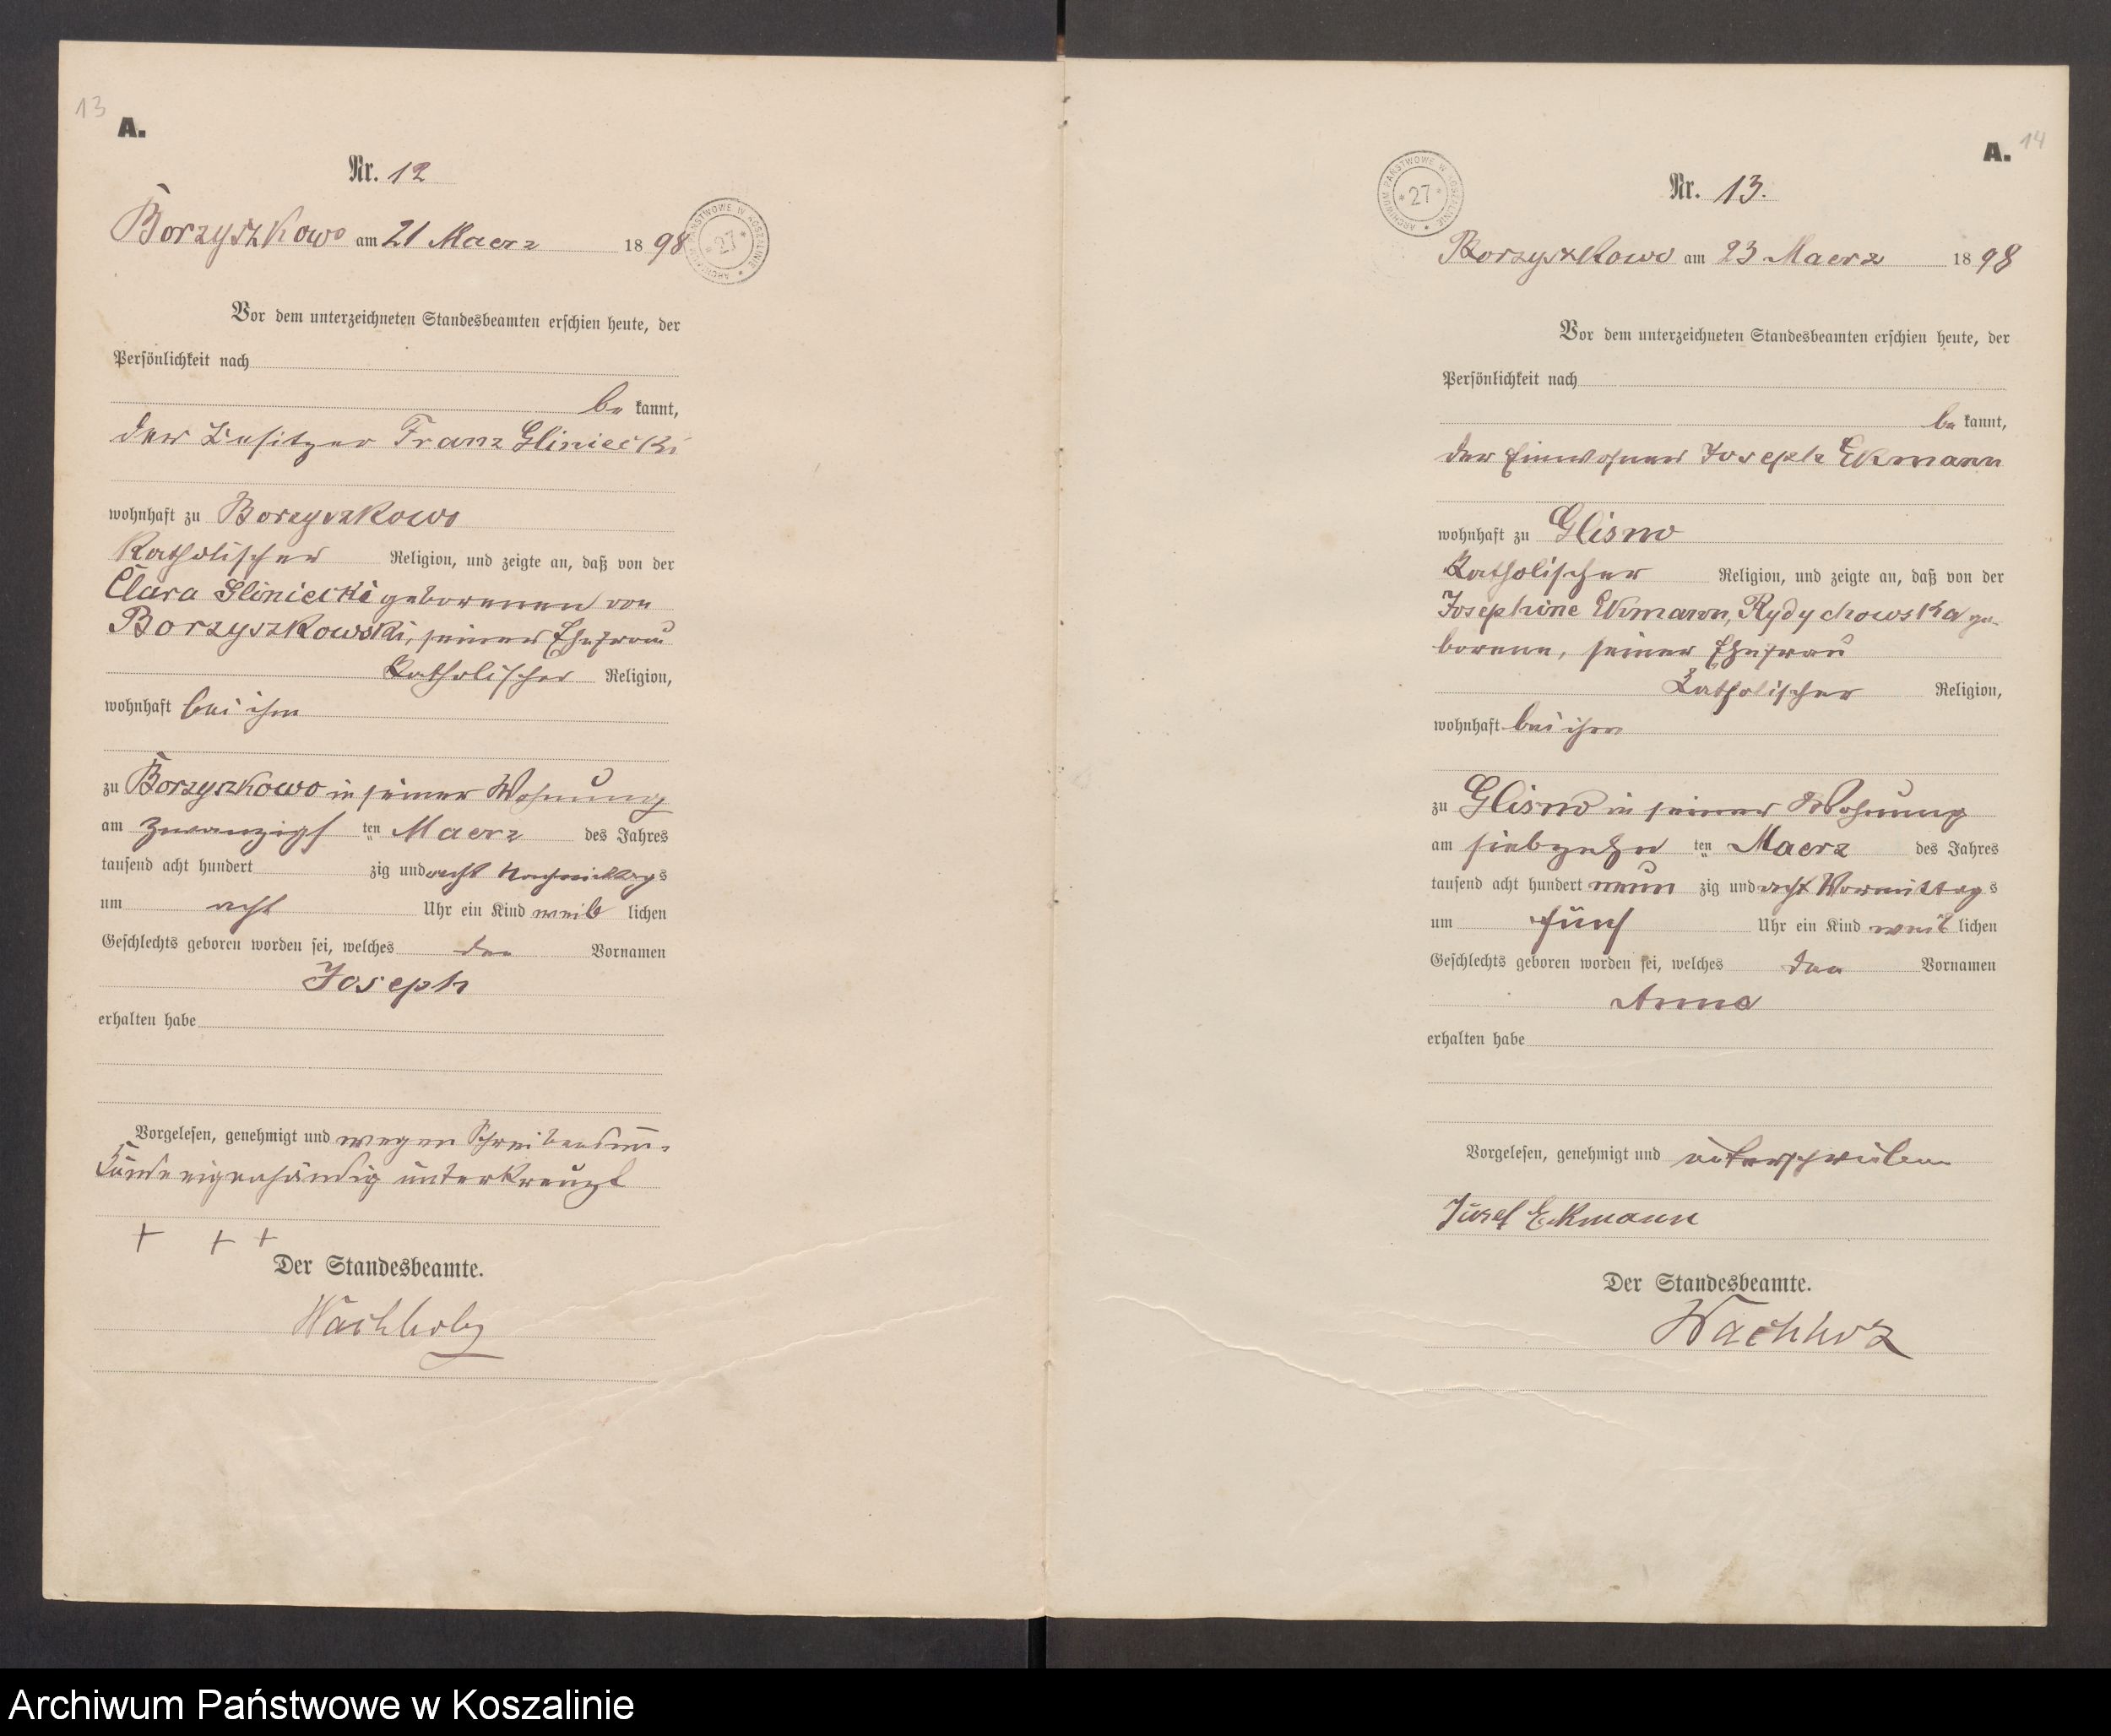 13
A.
Nr. 12
Borzyszkowo am 21 Maerz 1898
ARCHIWUM PAŃSTWOWE W KOSZALINIE * 27 *
Vor dem unterzeichneten Standesbeamten erschien heute, der
Persönlichkeit nach
be kannt,
der Besitzer Franz Gliniecki
wohnhaft zu Borzyszkowo
Katholischer Religion, und zeigte an, daß von der
Clara Gliniecki geborenen von
Borzyszkowski, seiner Ehefrau
Katholischer Religion,
wohnhaft bei ihm
zu Borzyszkowo in seiner Wohnung
am zwanzigs ten Maerz des Jahres
tausend acht hundert zig und acht Nachmittags
um acht Uhr ein Kind weib lichen
Geschlechts geboren worden sei, welches den Vornamen
Joseph
erhalten habe
Vorgelesen, genehmigt und wegen Schreibensun-
kunde eigenhändig unterkreuzt
+ + +
Der Standesbeamte.
Wachholz
A. 14
ARCHIWUM PAŃSTWOWE W KOSZALINIE * 27 *
Nr. 13.
Borzyszkowo am 23 Maerz 1898
Vor dem unterzeichneten Standesbeamten erschien heute, der
Persönlichkeit nach
be kannt,
der Einwohner Joseph Ekmann
wohnhaft zu Glisno
Katholischer Religion, und zeigte an, daß von der
Josephine Ekmann, Rydychowska ge-
borene, seiner Ehefrau
Katholischer Religion,
wohnhaft bei ihm
zu Glisno in seiner Wohnung
am siebzehn ten Maerz des Jahres
tausend acht hundert neun zig und acht Vormittags
um fünf Uhr ein Kind weib lichen
Geschlechts geboren worden sei, welches den Vornamen
Anna
erhalten habe
Vorgelesen, genehmigt und unterschrieben
Jusef Ekmann
Der Standesbeamte.
Wachholz
Archiwum Państwowe w Koszalinie